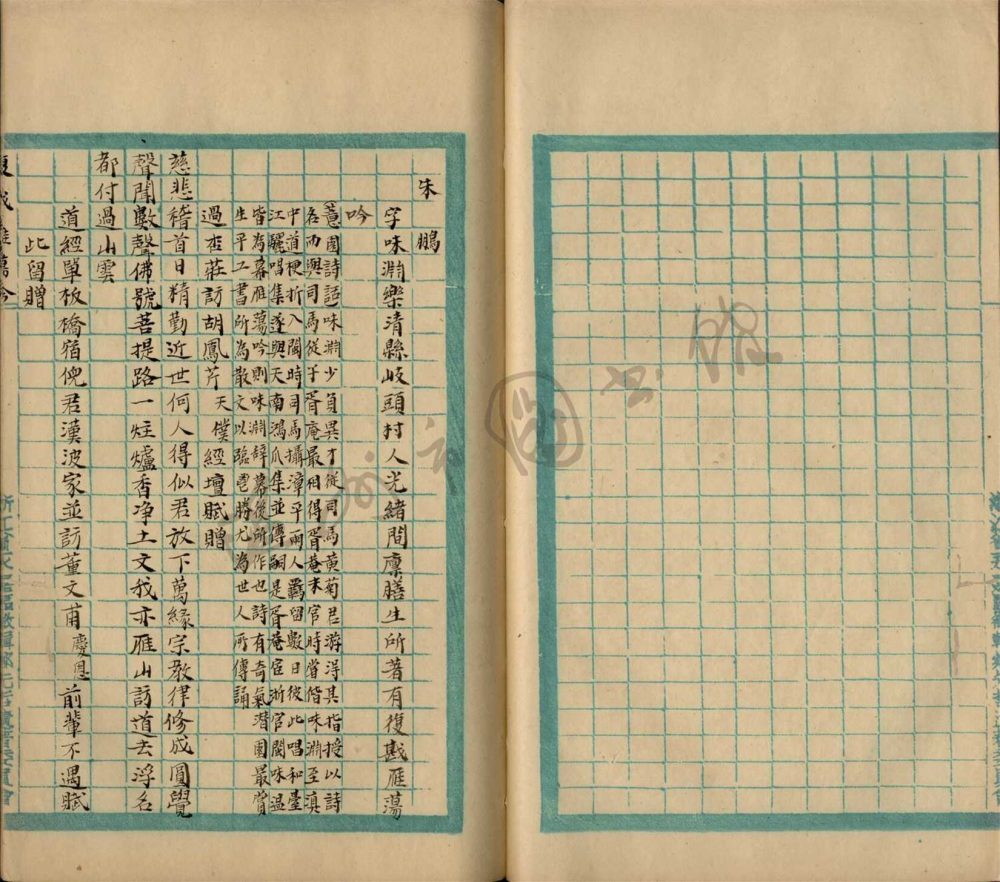 朱鵬
字味淵樂清縣岐頭村人光緒間廩膳生所著有復戡雁蕩
吟
意園詩話味淵少負異才從司馬黃菊君游得其指授以詩
名而與司馬從子胥庵最相得胥庵末官時嘗偕味淵至滇
中道梗折入閩時司馬攝漳平兩人羈留數日彼此唱和臺
江驪唱集遂與天南鴻爪集並傳嗣是胥庵官浙官閩味溫
皆為幕雁蕩吟則味淵辭幕後所作也詩有奇氣潛園最賞
生平工書所為散文以臨電勝尤為世人所傳誦
過杏莊訪胡鳳芹天僕經壇賦贈
慈悲稽首日精勤近世何人得似君放下萬緣宗教律修成圓覺
聲聞數聲佛號菩提路一炷爐香净土文我亦雁山訪道去浮名
都付過山雲
道經單板橋宿倪君漢波家並訪董文甫慶恩前輩不遇賦
此留贈